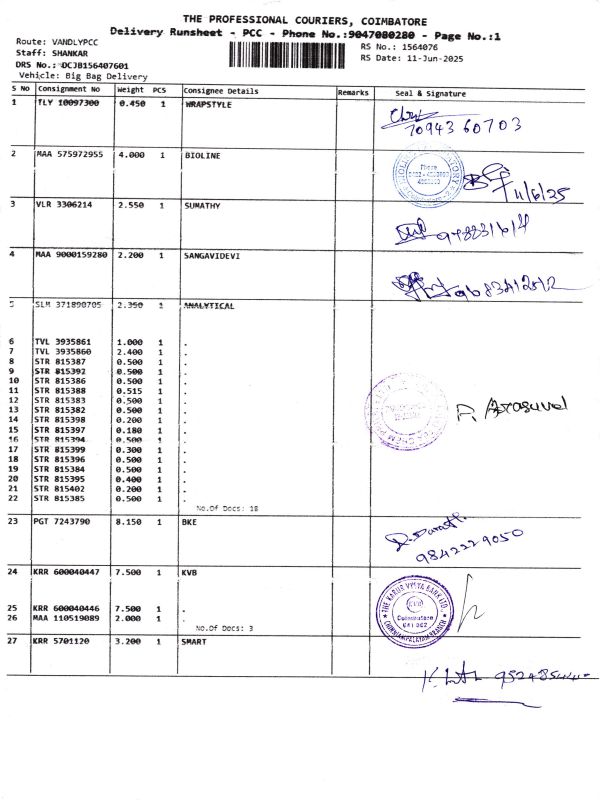 THE PROFESSIONAL COURIERS, COIMBATORE
Delivery Runsheet - PCC - Phone No.:9047080280 - Page No.:1
Route: VANDLYPCC
Staff: SHANKAR
DRS No.: DCJB156407601
Vehicle: Big Bag Delivery
RS No.: 1564076
RS Date: 11-Jun-2025
S No Consignment No Weight PCS Consignee Details Remarks Seal & Signature
1 TLY 10097300 0.450 1 WRAPSTYLE
7094360703
2 MAA 575972955 4.000 1 BIOLINE
Phone
11/6/25
3 VLR 3306214 2.550 1 SUMATHY
4 MAA 9000159280 2.200 1 SANGAVIDEVI
5 SLM 371890705 2.350 1 ANALYTICAL
6 TVL 3935861 1.000 1 .
7 TVL 3935860 2.400 1 .
8 STR 815387 0.500 1 .
9 STR 815392 0.500 1 .
10 STR 815386 0.500 1 .
11 STR 815388 0.515 1 .
12 STR 815383 0.500 1 .
13 STR 815382 0.500 1 .
14 STR 815398 0.200 1 .
15 STR 815397 0.180 1 .
16 STR 815394 0.500 1 .
17 STR 815399 0.300 1 .
18 STR 815396 0.500 1 .
19 STR 815384 0.500 1 .
20 STR 815395 0.400 1 .
21 STR 815402 0.200 1 .
22 STR 815385 0.500 1 .
No.Of Docs: 18
P. Arasuvel
23 PGT 7243790 8.150 1 BKE
9842229050
24 KRR 600040447 7.500 1 KVB
25 KRR 600040446 7.500 1 .
26 MAA 110519089 2.000 1 .
No.Of Docs: 3
THE KARUR VYSYA BANK LTD.,
KVB
Coimbatore
641 002
27 KRR 5701120 3.200 1 SMART